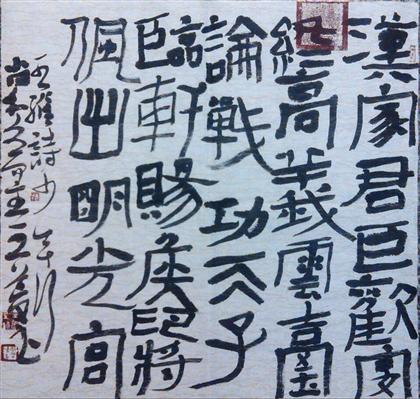 漢家君臣歡宴
終高議雲臺
論戰功天子
臨軒賜侯印將
佩出明光宮
王維詩少年行